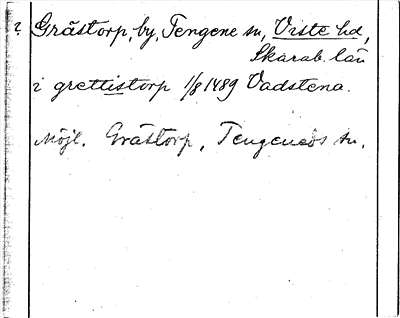 ? Gråstorp, by, Tengene sn, Viste hd,
Skarab. län
i grettistorp 1/8 1489 Vadstena.
Möjl. Gråstorp, Tengeneås sn.